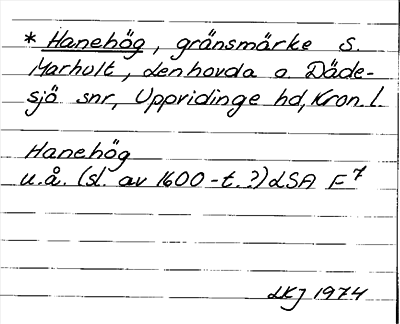 * Hanehög, gränsmärke S.
Marhult, Lenhovda o. Däde-
sjö snr, Uppvidinge hd, Kron. l.
Hanehög
u.å. (sl. av 1600-t.?) LSA F 7
LKJ 1974